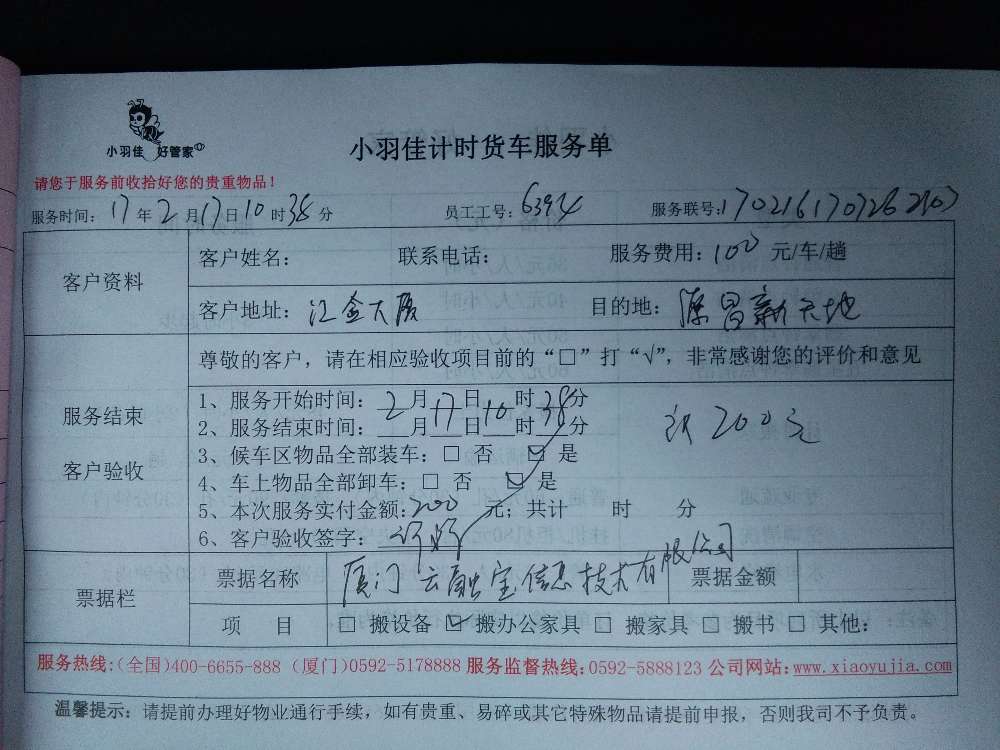 小羽佳 好管家
小羽佳计时货车服务单
请您于服务前收拾好您的贵重物品！
服务时间：17年2月17日10时38分 员工工号：6394 服务联号：
客户资料
客户姓名： 联系电话： 服务费用：100元/车/趟
客户地址：汇金大厦 目的地：源昌新天地
尊敬的客户，请在相应验收项目前的“□”打“√”，非常感谢您的评价和意见
服务结束
客户验收
1、服务开始时间：2月17日10时38分
2、服务结束时间： 月 日 时 分
200元
3、候车区物品全部装车：□ 否 ☑ 是
4、车上物品全部卸车：□ 否 ☑ 是
5、本次服务实付金额：200元；共计 时 分
6、客户验收签字：
票据栏
票据名称 厦门云融宝信息技术有限公司 票据金额
项 目 □ 搬设备 ☑ 搬办公家具 □ 搬家具 □ 搬书 □ 其他：
服务热线：(全国)400-6655-888 (厦门)0592-5178888 服务监督热线：0592-5888123 公司网站：www.xiaoyujia.com
温馨提示：请提前办理好物业通行手续，如有贵重、易碎或其它特殊物品请提前申报，否则我司不予负责。